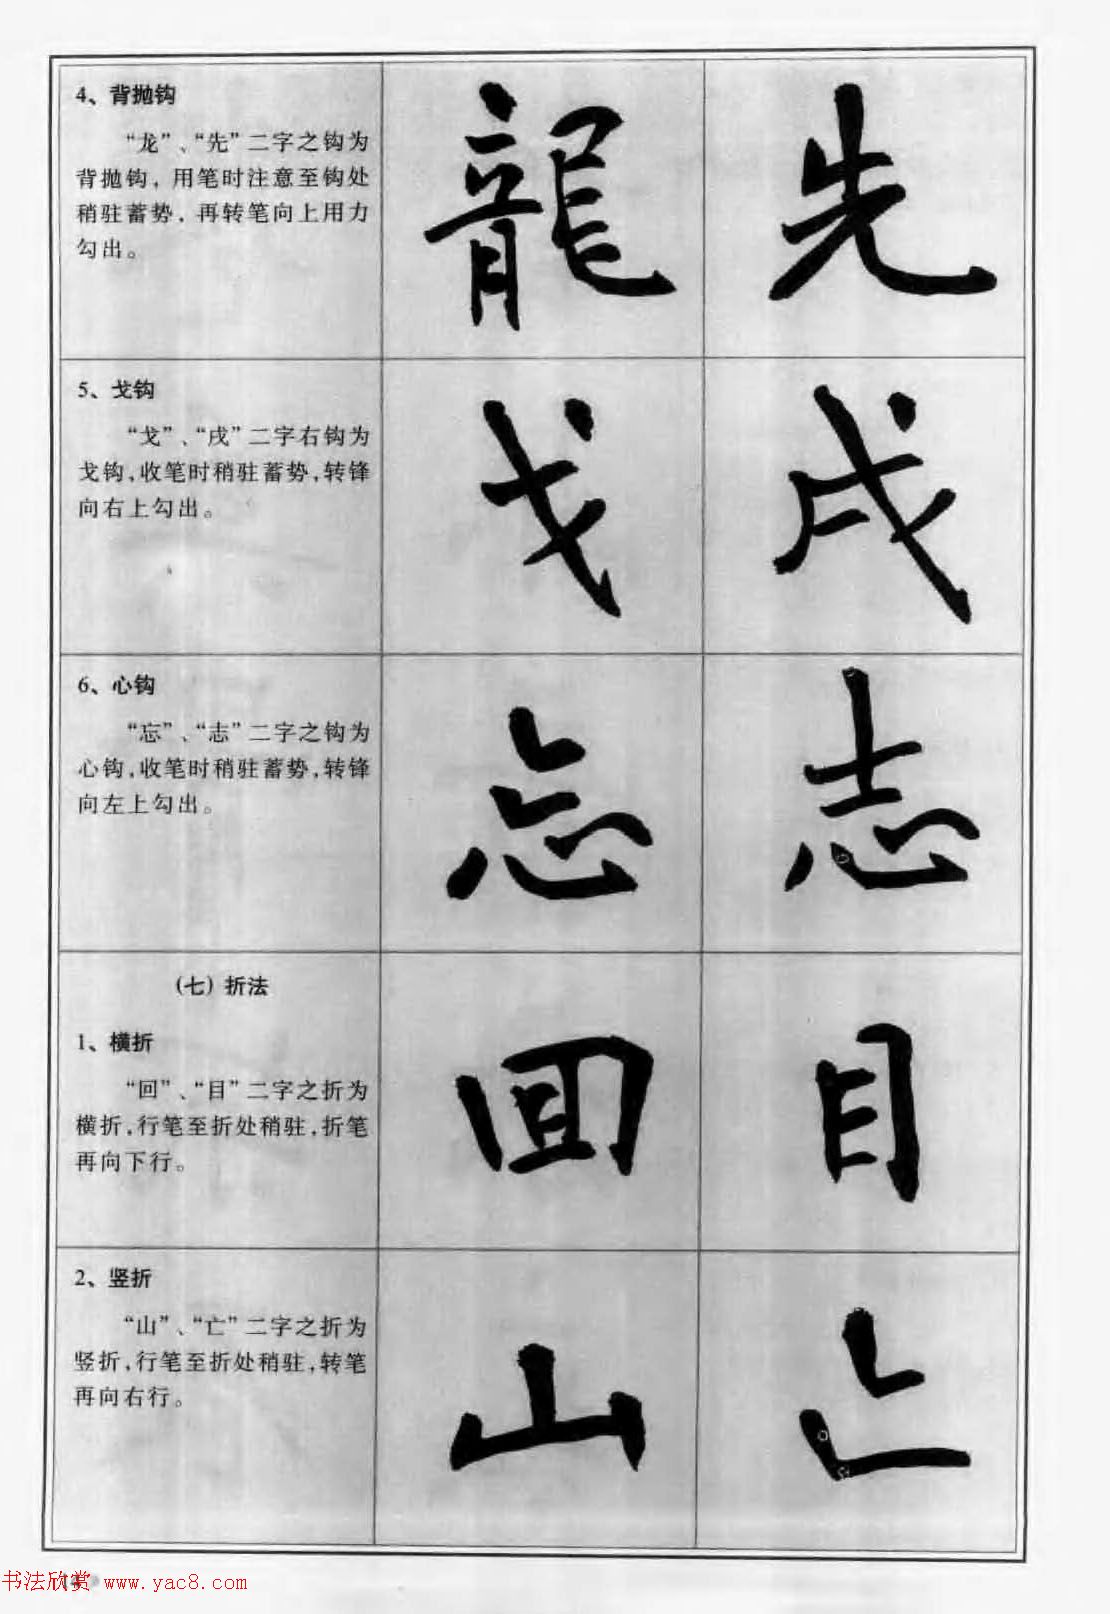 4、背抛钩
“龙”、“先”二字之钩为
背抛钩，用笔时注意至钩处
稍驻蓄势，再转笔向上用力
勾出。
龍 先
5、戈钩
“戈”、“戌”二字右钩为
戈钩，收笔时稍驻蓄势，转锋
向右上勾出。
戈 戌
6、心钩
“忘”、“志”二字之钩为
心钩，收笔时稍驻蓄势，转锋
向左上勾出。
忘 志
（七）折法
1、横折
“回”、“目”二字之折为
横折，行笔至折处稍驻，折笔
再向下行。
回 目
2、竖折
“山”、“亡”二字之折为
竖折，行笔至折处稍驻，转笔
再向右行。
山 亡
书法欣赏 www.yac8.com